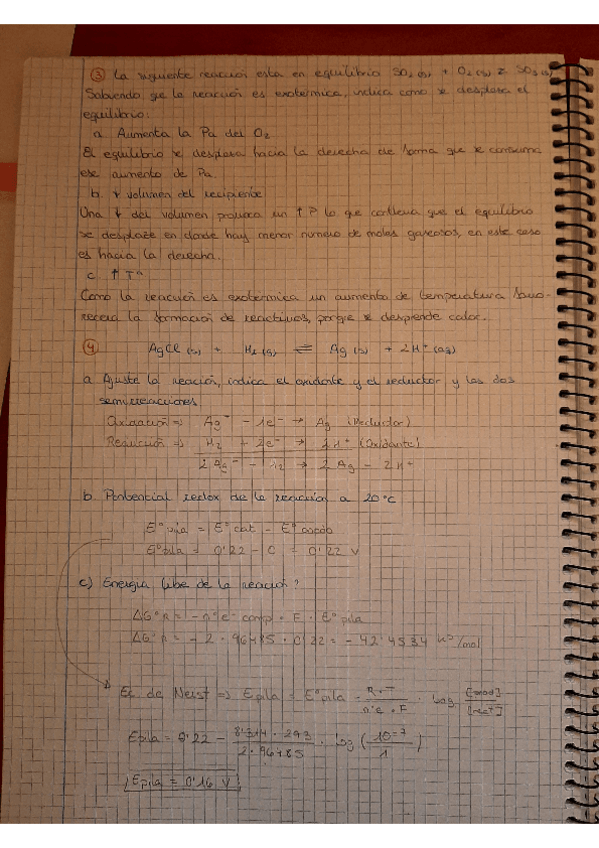 ③ La siguiente reacción esta en equilibrio SO₂ (g) + O₂ (g) ⇄ SO₃ (g)
Sabiendo que la reacción es exotermica, indica como se desplaza el
equilibrio:
a. Aumenta la Pa del O₂
El equilibrio se desplaza hacia la derecha de forma que se consuma
ese aumento de Pa.
b. ↓ volumen del recipiente
Una ↓ del volumen provoca un ↑ P lo que conlleva que el equilibrio
se desplaze en donde hay menor numero de moles gaseosos, en este caso
es hacia la derecha.
c. ↑ Tª
Como la reacción es exotermica un aumento de temperatura favo-
recera la formacion de reactivos, porque se desprende calor.
④ AgCl (s) + H₂ (g) ⇌ Ag (s) + 2H⁺ (aq)
a. Ajuste la reación, indica el oxidante y el reductor y las dos
semirreacciones
Oxidación ⇒ Ag⁻ - 1e⁻ → Ag (Reductor)
Reducción ⇒ H₂ + 2e⁻ → 2H⁺ (Oxidante)
2 Ag⁻ - H₂ → 2 Ag - 2H⁺
b. Pontencial redox de la reacción a 20°C
E° pila = E° cat - E° anodo
E° pila = 0'22 - 0 = 0'22 V
c) Energia libe de la reación?
ΔG° R = - n° e⁻ comp · F · E° pila
ΔG° R = - 2 · 96485 · 0'22 = - 42'4534 KJ/mol
Ec de Nerst ⇒ Epila = E° pila - R·T / n°e · F · Log [prod] / [reat]
Epila = 0'22 - 8'314 · 293 / 2 · 96485 · log ( 10⁻⁷ / 1 )
Epila = 0'16 V